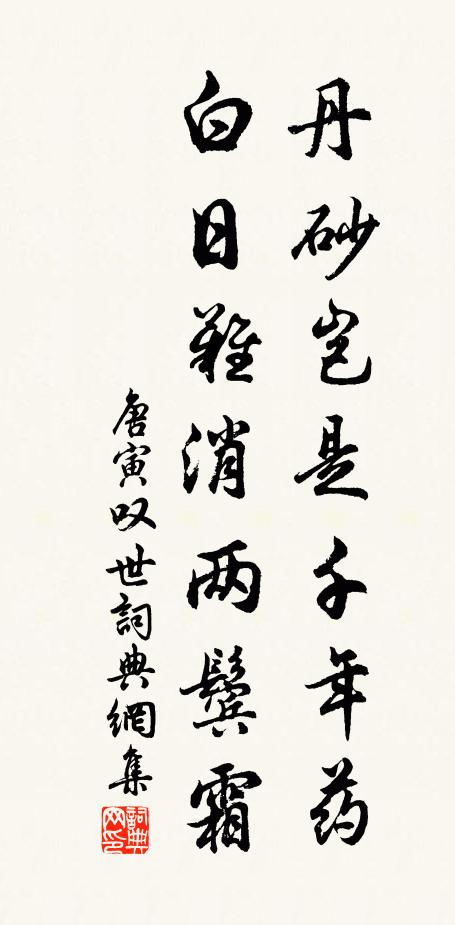 丹砂岂是千年药
白日難消两鬓霜
唐寅叹世詞典網集
詞典网印